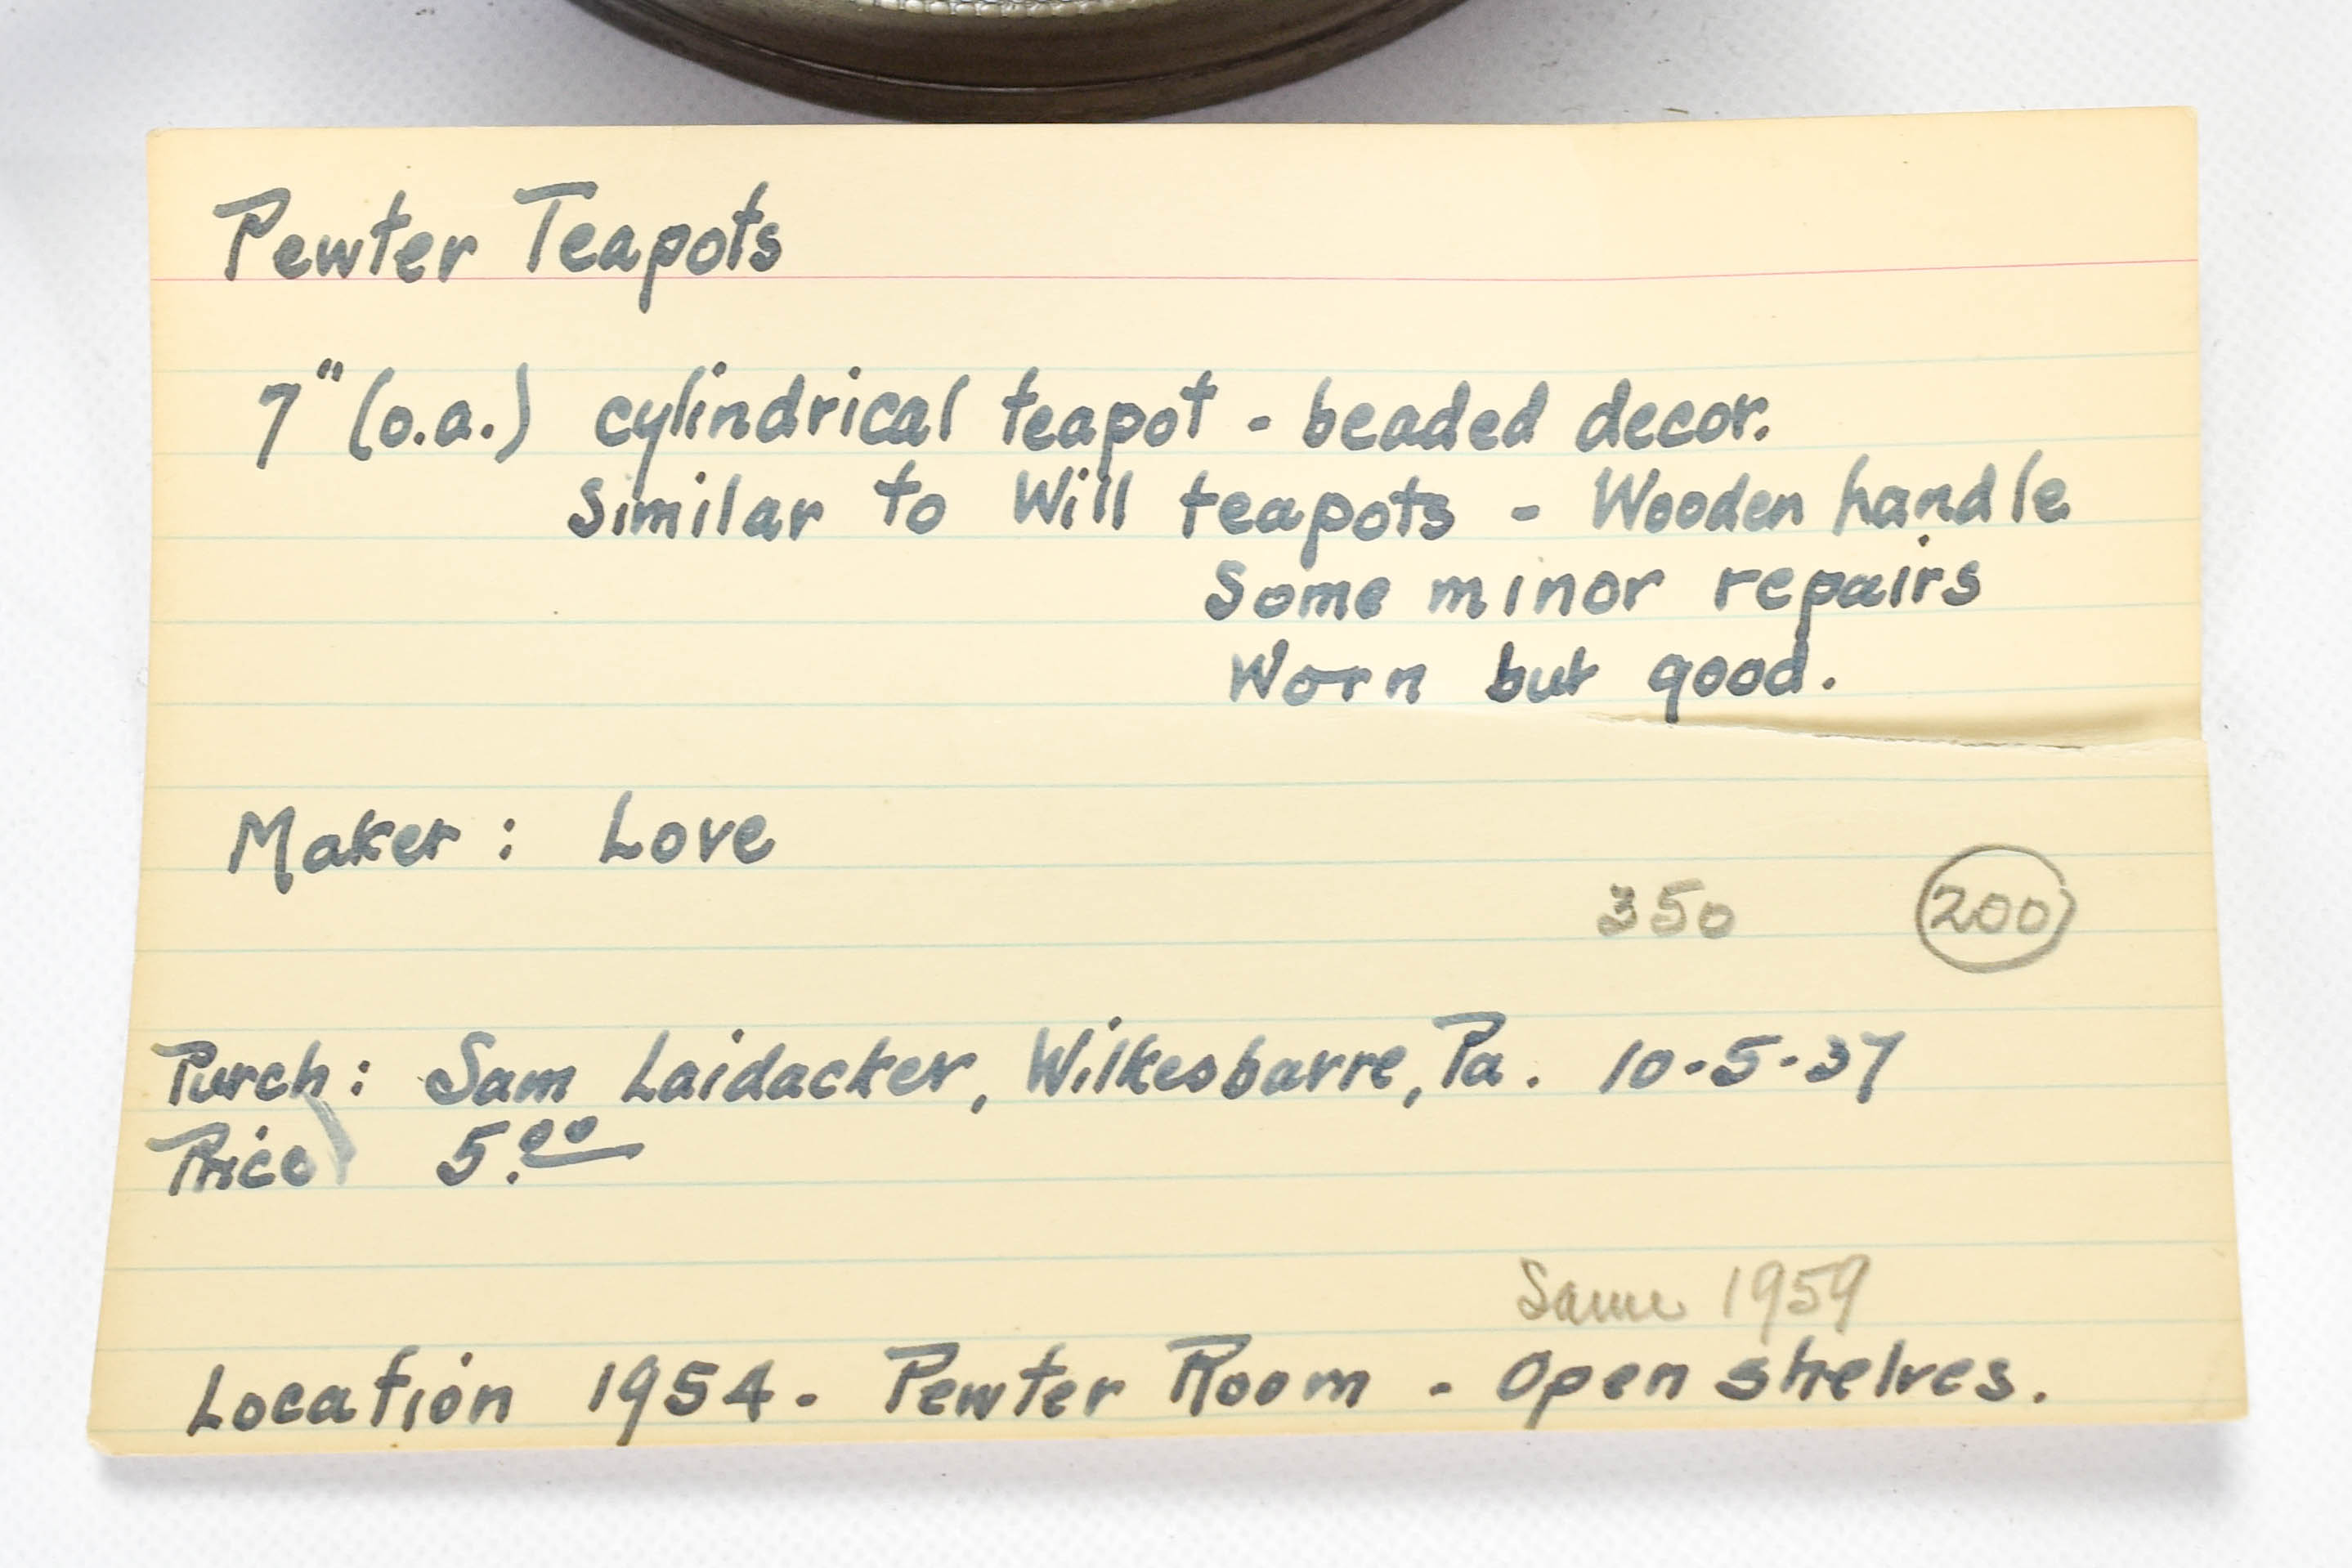 Pewter Teapots
7" (o.a.) cylindrical teapot - beaded decor.
Similar to Will teapots - Wooden handle
Some minor repairs
Worn but good.
Maker : Love
350 200
Purch: Sam Laidacker, Wilkesbarre, Pa. 10-5-37
Price 5.00
Same 1959
Location 1954. Pewter Room - Open shelves.